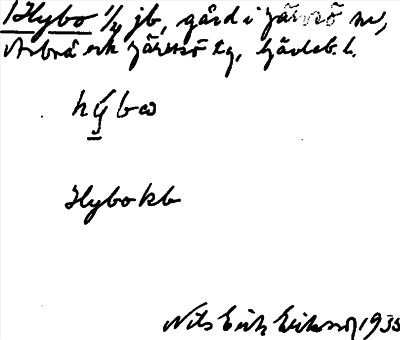 Hybo 1/4 jb, gård i Järvsö sn,
Arbrå och Järvsö tg, Gävleb. l.
hy̱bω
Hybo kb
Nils Erik Eriksson 1935